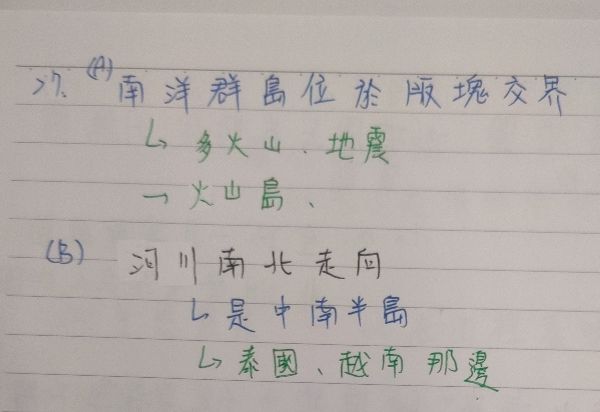 27. (A) 南洋群島位於版塊交界
↳ 多火山、地震
→ 火山島、
(B) 河川南北走向
↳ 是中南半島
↳ 泰國、越南那邊